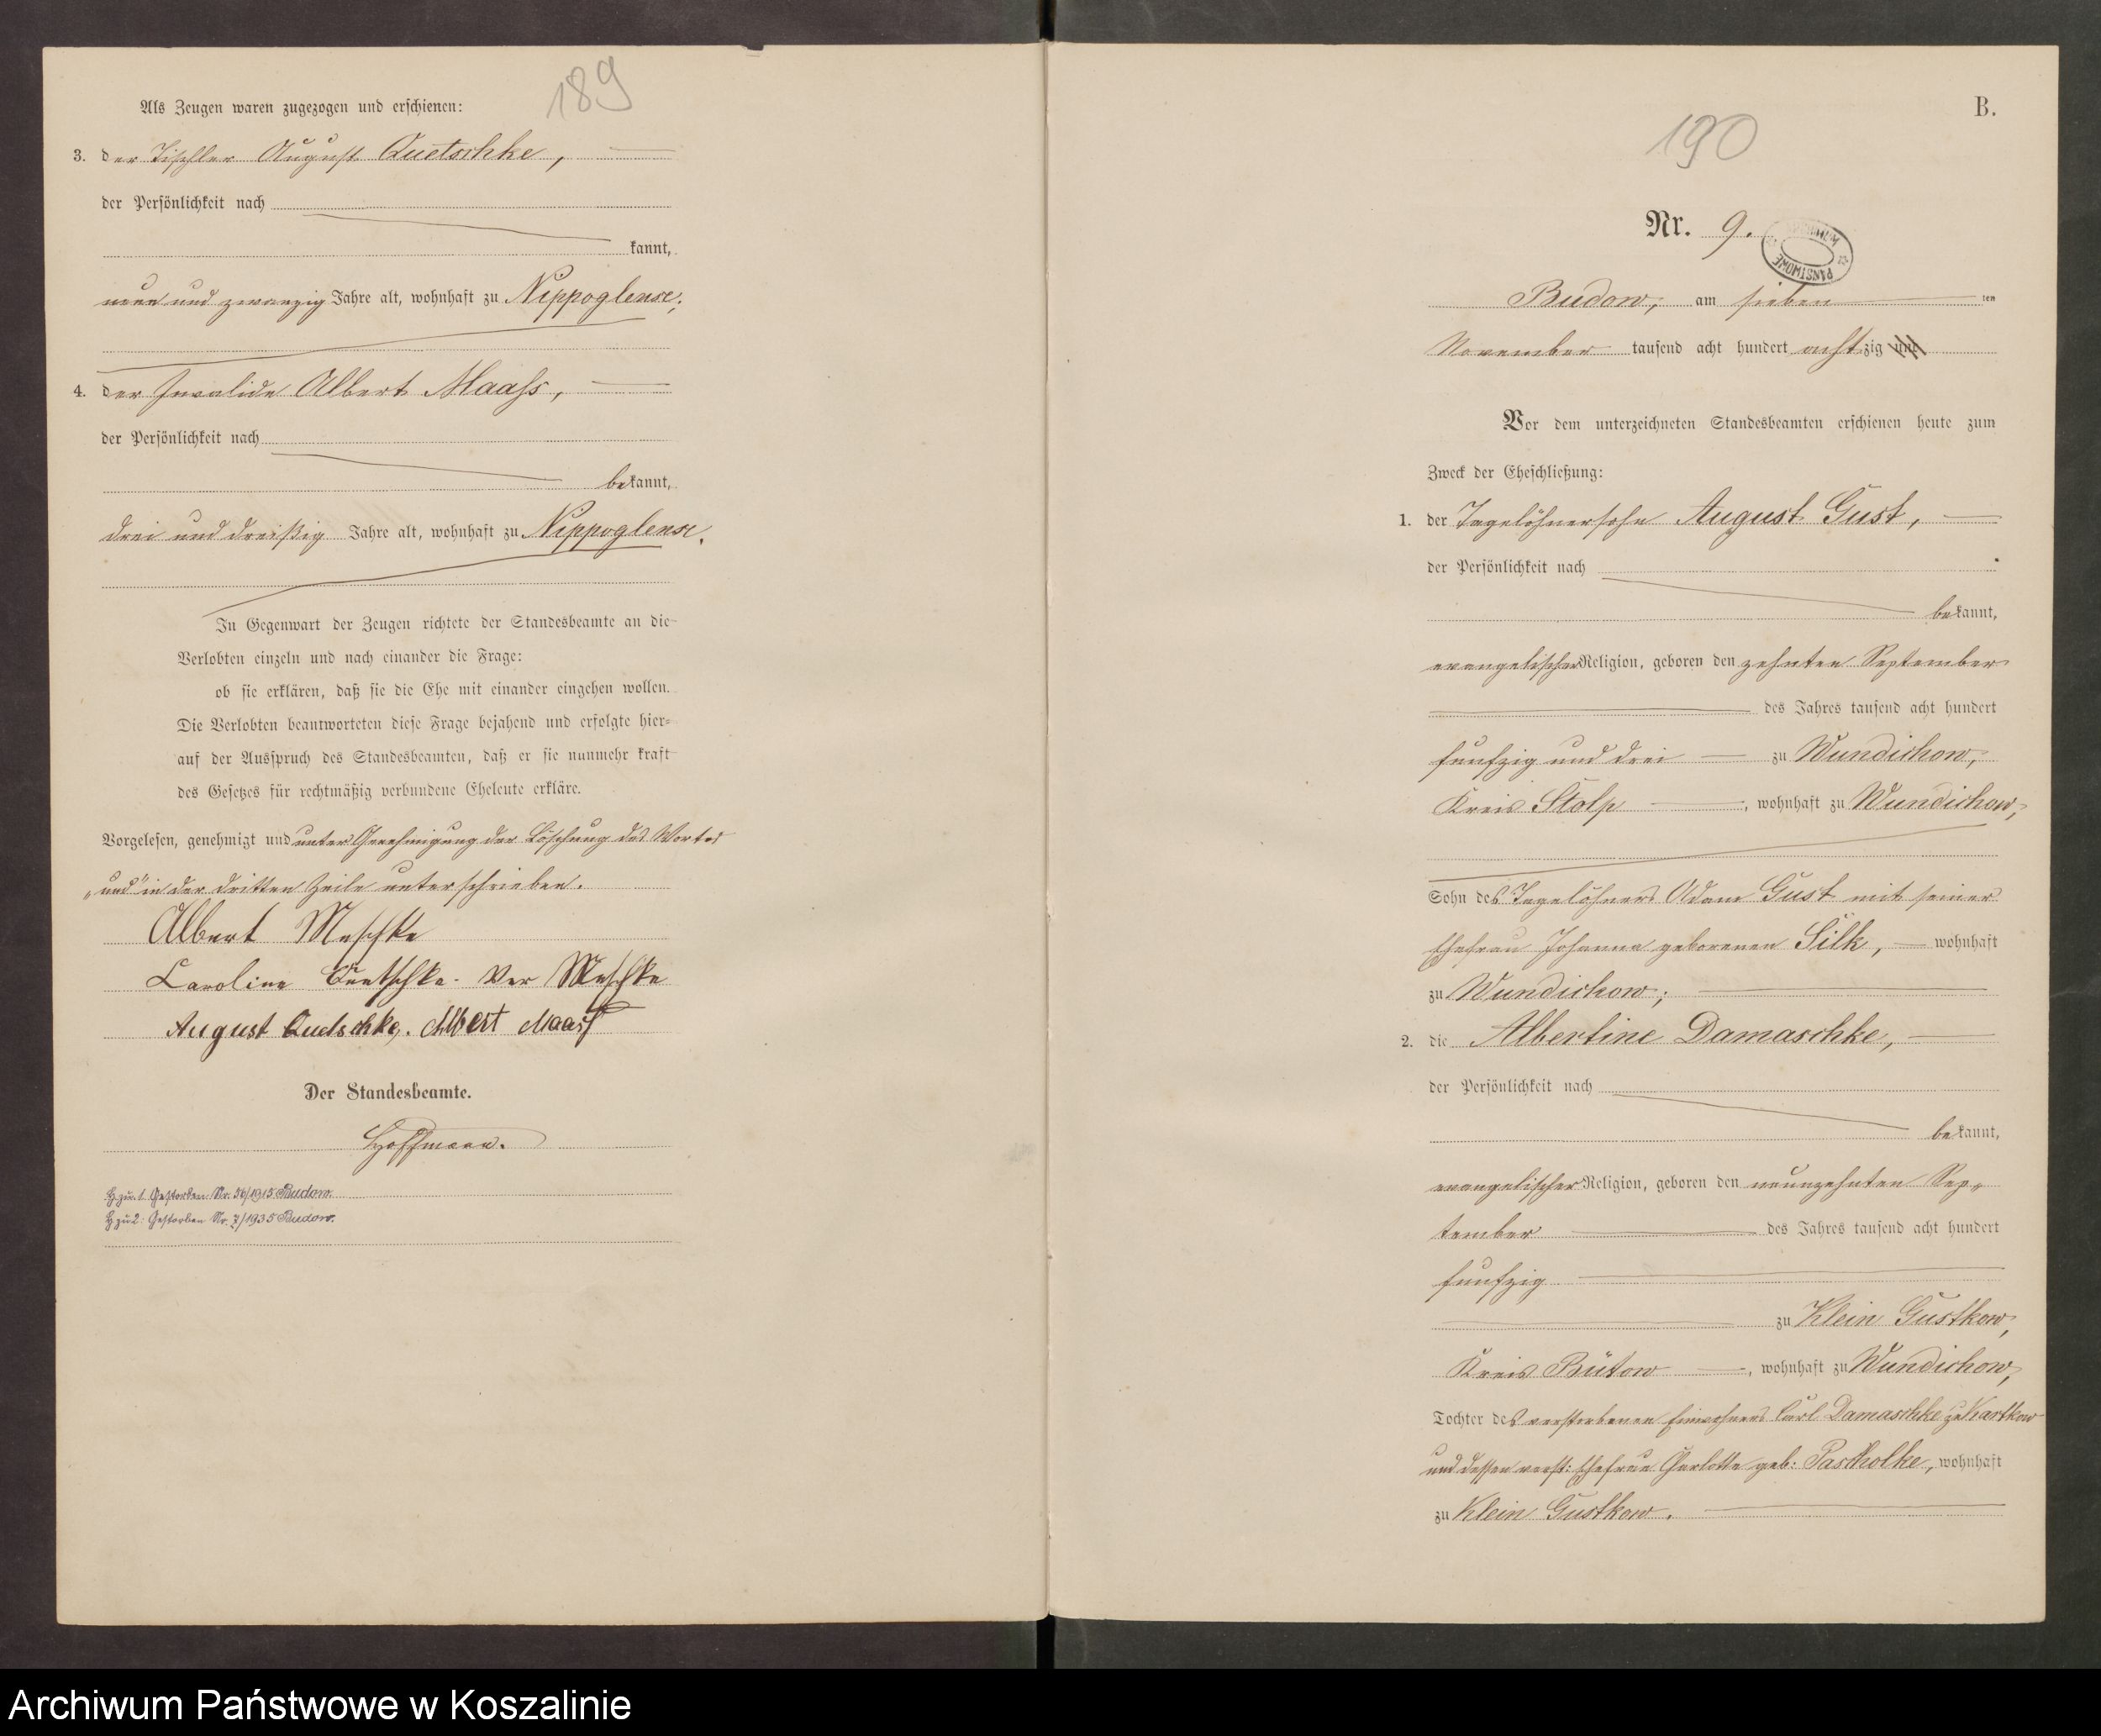 189
Als Zeugen waren zugezogen und erschienen:
3. der Tischler August Quetschke,
der Persönlichkeit nach
kannt,
neun und zwanzig Jahre alt, wohnhaft zu Nippoglense;
4. der Invalide Albert Maaß,
der Persönlichkeit nach
bekannt,
drei und dreißig Jahre alt, wohnhaft zu Nippoglense.
In Gegenwart der Zeugen richtete der Standesbeamte an die
Verlobten einzeln und nach einander die Frage:
ob sie erklären, daß sie die Ehe mit einander eingehen wollen.
Die Verlobten beantworteten diese Frage bejahend und erfolgte hier-
auf der Ausspruch des Standesbeamten, daß er sie nunmehr kraft
des Gesetzes für rechtmäßig verbundene Eheleute erkläre.
Vorgelesen, genehmigt und unter Genehmigung der Löschung des Wortes
„und" in der dritten Zeile unterschrieben.
Albert Meschke
Caroline Quetschke Ver Meschke
August Quetschke. Albert Maaß
Der Standesbeamte.
Hoffmann.
H zu 1. Gestorben Nr. 56/1915 Budow.
H zu 2: Gestorben Nr. 7/1935 Budow.
B.
190
Nr. 9.
PAŃSTWOWE
Budow, am sieben ten
November tausend acht hundert achtzig und
Vor dem unterzeichneten Standesbeamten erschienen heute zum
Zweck der Eheschließung:
1. der Tagelöhnersohn August Gust,
der Persönlichkeit nach
bekannt,
evangelischer Religion, geboren den zehnten September
des Jahres tausend acht hundert
funfzig und drei zu Wundichow,
Kreis Stolp, wohnhaft zu Wundichow,
Sohn des Tagelöhners Adam Gust mit seiner
Ehefrau Johanna geborenen Silk, wohnhaft
zu Wundichow;
2. die Albertine Damaschke,
der Persönlichkeit nach
bekannt,
evangelischer Religion, geboren den neunzehnten Sep-
tember des Jahres tausend acht hundert
funfzig
zu Klein Gustkow,
Kreis Bütow, wohnhaft zu Wundichow,
Tochter des verstorbenen Einwohners Carl Damaschke zu Kartkow
und dessen verst: Ehefrau Charlotte geb: Pascholke, wohnhaft
zu Klein Gustkow.
Archiwum Państwowe w Koszalinie